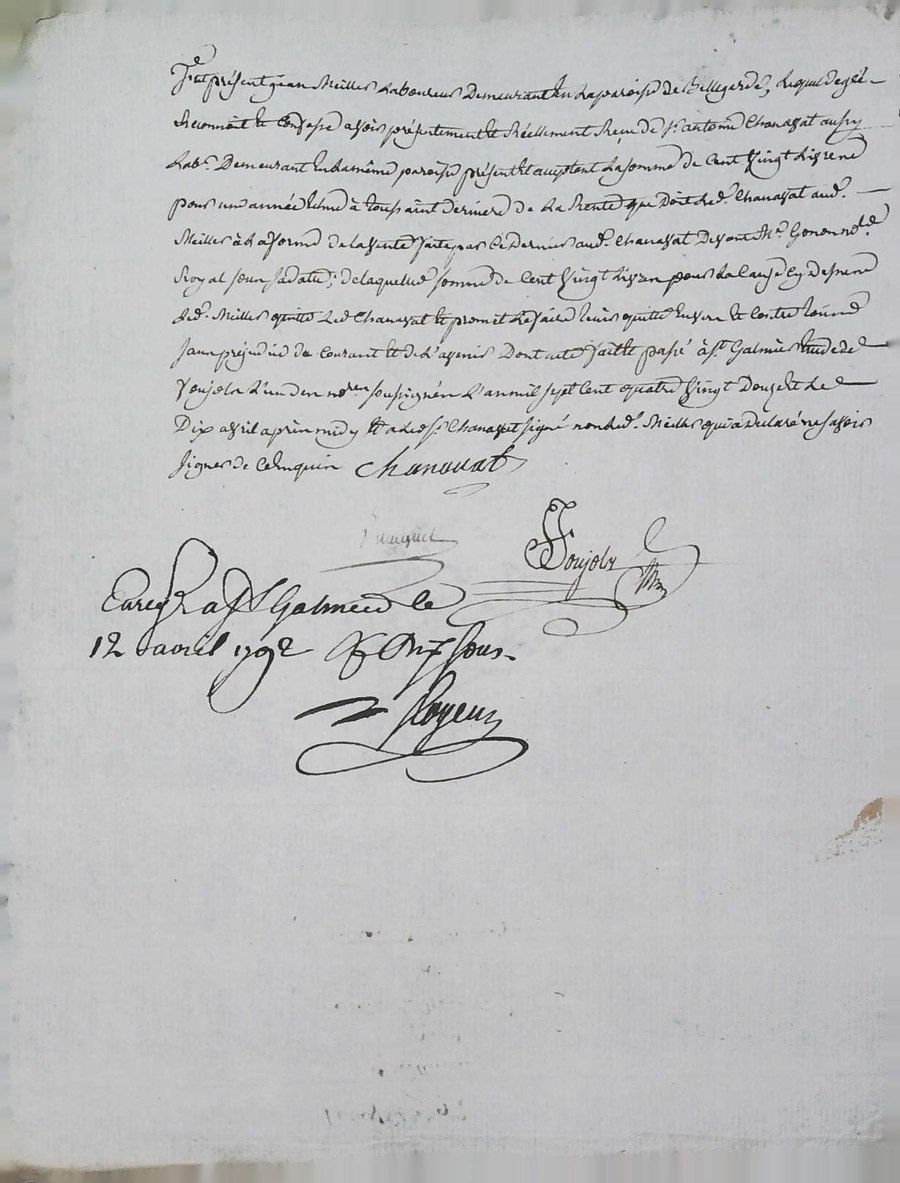 Fut présent jean Meiller Laboureur Demeurant En La paroisse de Bellegarde, Lequel de gré
Reconnoit et Confesse avoir présentement et Réellement Reçu de Sr. antoine Chanavat aussy
Labr. Demeurant En La même paroisse présent et acceptant La somme de Cent Vingt Livres
pour une année Echue à toussaint derniere de La Rente que Doit Led. Chanavat aud.
Meiller à La forme de La vente faite par Ce Dernier aud. Chanavat Devant Me. Gonon nore.
Royal sous sa datte; de laquelle somme de Cent Vingt Livres pour La Cause Cy Dessus
Led. Meiller quitte Led Chanavat et promet Le faire tenir quitte Envers et Contre tous
sans préjudice du Courant et de L'avenir Dont acte fait et passé à St. Galmier Etude de
Poujolz L'un des nores soussignés L'an mil sept Cent quatre Vingt Douze et Le
Dix avril après midy Et a Led. Sr. Chanavat signé non Led. Meiller qui a déclaré ne savoir
signer de Ce Enquis Chanavat
Poujolz
Enreg. a St Galmier le
12 avril 1792 sous